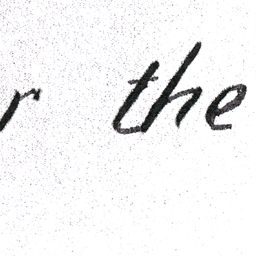 r the